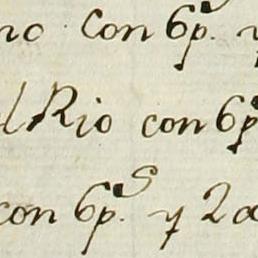 no con 6p.s y
el Rio con 6p
con 6p.s y 2